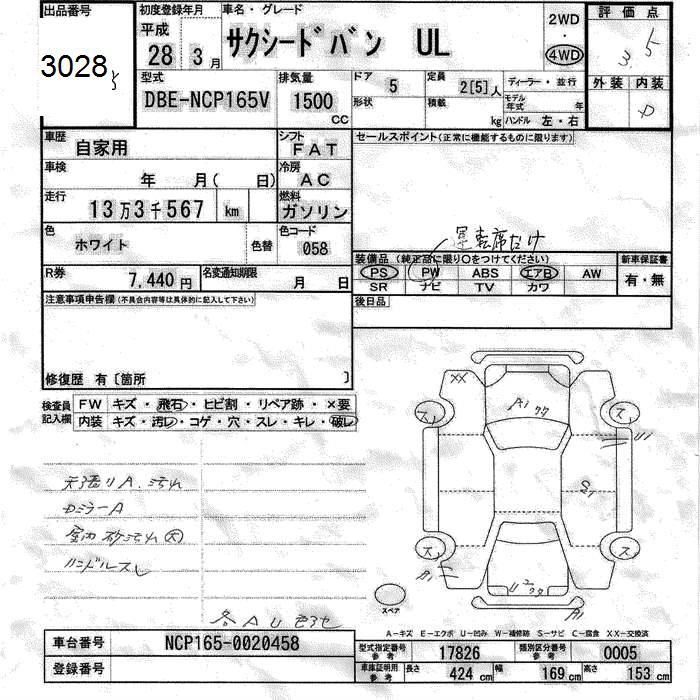 出品番号
3028
初度登録年月
平成
28 3 月
車名・グレード
サクシードバン UL
2WD
・
4WD
評価点
3.5
外装 内装
D
型式
DBE-NCP165V
排気量
1500
CC
ドア 5
形状
定員 2[5]人
積載 kg
ディーラー・並行
モデル年式 年
ハンドル 左・右
車歴
自家用
シフト
FAT
車検
年 月( 日)
冷房
AC
走行
13万3千567 km
燃料
ガソリン
色
ホワイト
色替
色コード
058
R券
7,440円
名変通知期限
月 日
セールスポイント(正常に機能するものに限ります)
運転席だけ
装備品(純正品に限り○をつけてください)
PS PW ABS エアB AW
SR ナビ TV カワ
新車保証書
有・無
後日品
注意事項申告欄(不具合内容等は具体的に記入して下さい)
修復歴 有〔箇所 〕
検査員
記入欄
FW キズ・飛石・ヒビ割・リペア跡・×要
内装 キズ・汚レ・コゲ・穴・スレ・キレ・破レ
天張りA、汚れ
Dミラー A
室内 砂汚れ 大
ハンドルスレ
各 A U
XX
A1
ス
ス
U1
S1
ス
ス
A1
U2
A1
スペア
A-キズ E-エクボ U-凹み W-補修跡 S-サビ C-腐食 XX-交換済
車台番号 NCP165-0020458
登録番号
型式指定番号
参考
17826
類別区分番号
参考
0005
車庫証明用
参考
長さ 424 cm 幅 169 cm 高さ 153 cm